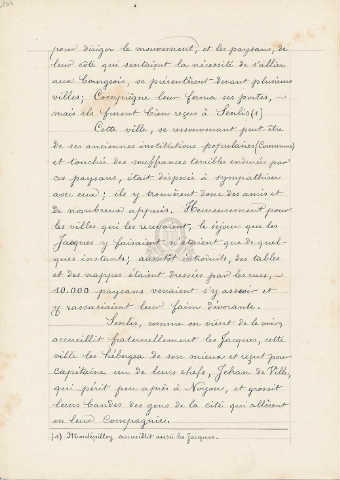 pour diriger le mouvement, et les paysans, de
leur côté qui sentaient la nécessité de s'allier
aux bourgeois, se présentèrent devant plusieurs
villes; Compiègne leur ferma ses portes, –
mais ils furent bien reçus à Senlis (1)
Cette ville, se ressouvenant peut être
de ses anciennes institutions populaires (Commune)
et touchée des souffrances terribles endurées par
ces paysans, était disposée à sympathiser
avec eux; ils y trouvèrent donc des amis et
de nombreux appuis. Heureusement pour
les villes qui les recevaient, le séjour que les
Jacques y faisaient n'étaient que de quel-
ques instants; aussitôt introduits, des tables
et des nappes étaient dressées par les rues, –
10.000 paysans venaient s'y asseoir et
y rassasiaient leur faim dévorante.
Senlis, comme on vient de le voir,
accueillit fraternellement les Jacques, cette
ville les hébergea de son mieux et reçut pour
capitaine un de leurs chefs, Jehan de Ville,
qui périt peu après à Noyon, et grossit
leurs bandes des gens de la cité qui allèrent
en leur Compagnie.
(1) Montépilloy accueillit aussi les Jacques.